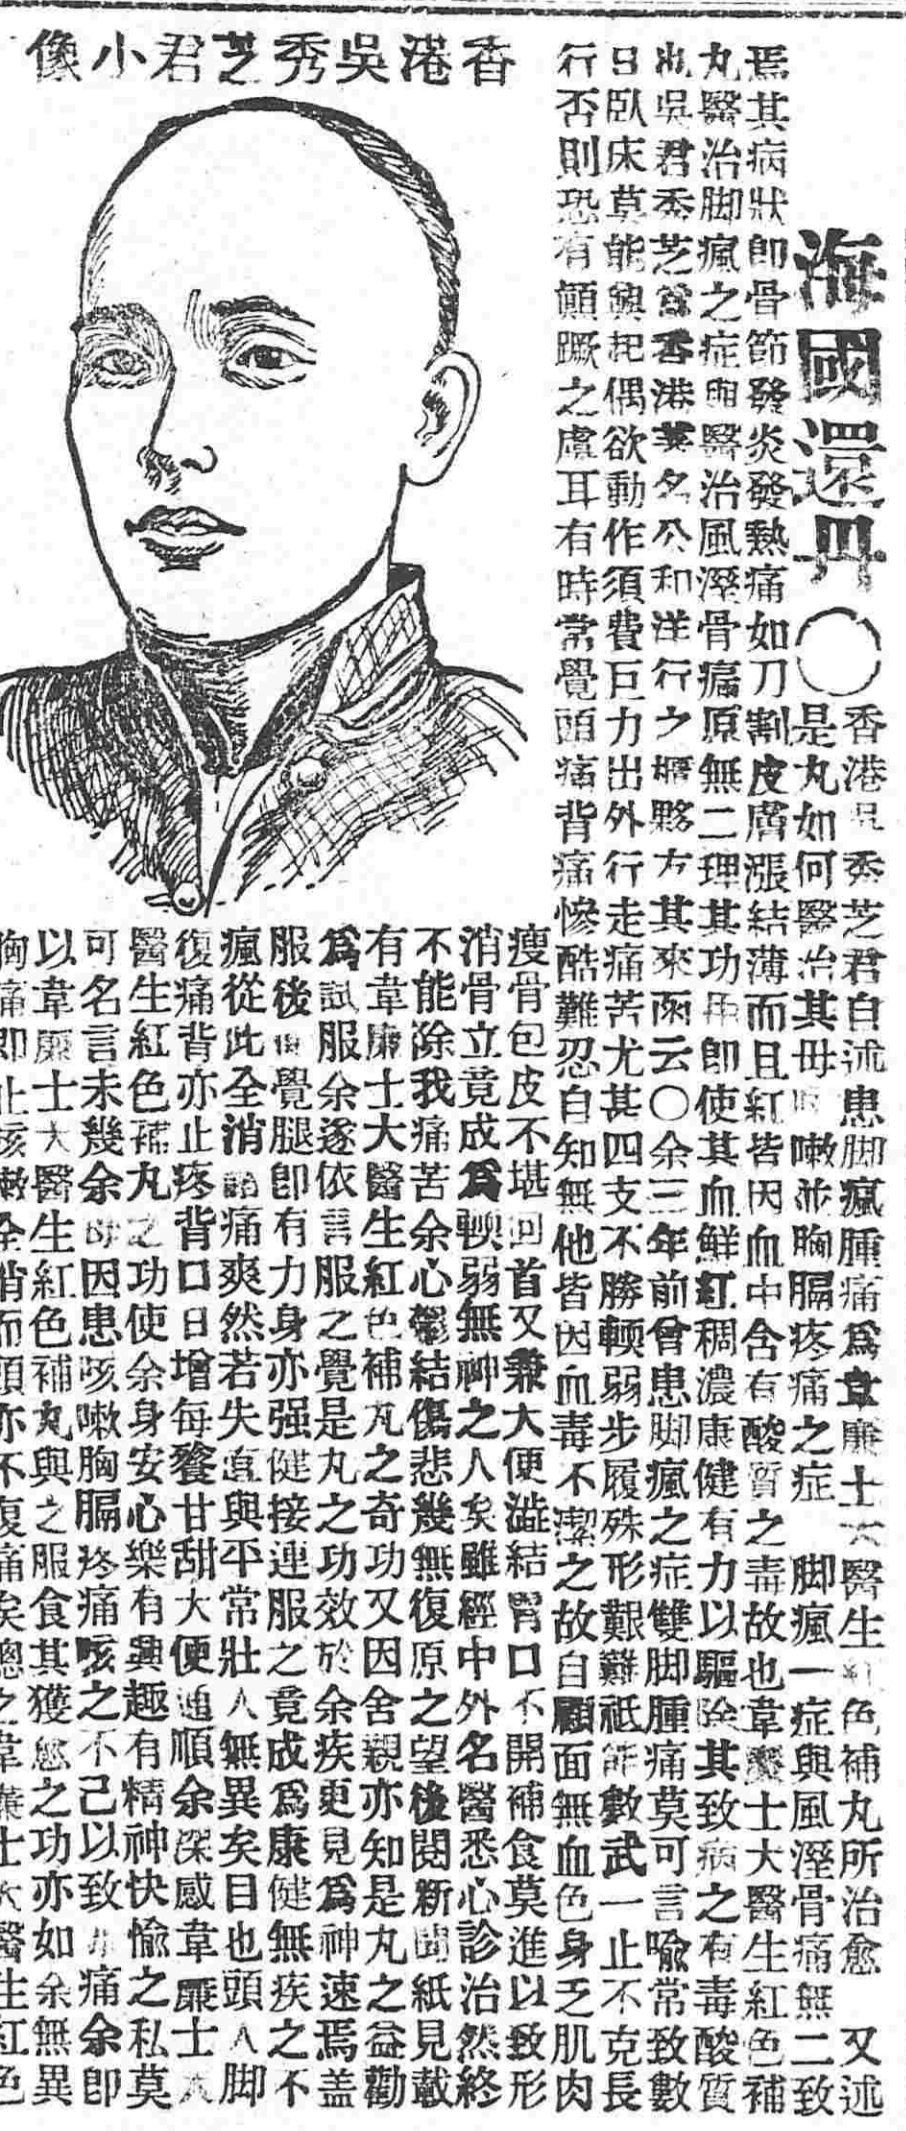 香港吳秀芝君小像
海國還丹〇
香港吳秀芝君自述患脚瘋腫痛爲韋廉士大醫生紅色補丸所治愈 又述
是丸如何醫治其母 嗽並胸膈疼痛之症 脚瘋一症與風溼骨痛無二致
焉其病狀卽骨節發炎發熱痛如刀割皮膚漲結薄而且紅皆因血中含有酸質之毒故也韋廉士大醫生紅色補
丸醫治脚瘋之症與醫治風溼骨痛原無二理其功用卽使其血鮮紅稠濃康健有力以驅除其致病之有毒酸質
出吳君秀芝爲香港著名公和洋行之櫃夥方其來函云〇余三年前曾患脚瘋之症雙脚腫痛莫可言喻常致數
日臥床莫能興起偶欲動作須費巨力出外行走痛苦尤甚四支不勝輭弱步履殊形艱難祇能數武一止不克長
行否則恐有顚蹶之虞耳有時常覺頭痛背痛慘酷難忍自知無他皆因血毒不潔之故自顧面無血色身乏肌肉
瘦骨包皮不堪回首又兼大便澁結胃口不開補食莫進以致形
消骨立竟成爲輭弱無神之人矣雖經中外名醫悉心診治然終
不能除我痛苦余心鬱結傷悲幾無復原之望後閱新聞紙見載
有韋廉士大醫生紅色補丸之奇功又因舍親亦知是丸之益勸
爲試服余遂依言服之覺是丸之功效於余疾更見爲神速焉蓋
服後 覺腿卽有力身亦强健接連服之竟成爲康健無疾之不
瘋從此全消 痛爽然若失直與平常壯人無異矣目也頭人脚
復痛背亦止疼背口日增每餐甘甜大便通順余深感韋廉士大
醫生紅色補丸之功使余身安心樂有興趣有精神快愉之私莫
可名言未幾余 因患咳嗽胸膈疼痛咳之不已以致 痛余卽
以韋廉士大醫生紅色補丸與之服食其獲愈之功亦如余無異
胸痛卽止咳嗽全消而頭亦不復痛矣總之韋廉士大醫生紅色